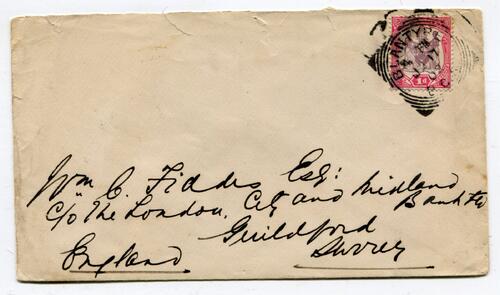 BLANTYRE
1d
Wm C. Fiddes Esq:
c/o The London, City and Midland
Bank Ltd
Guildford
Surrey
England